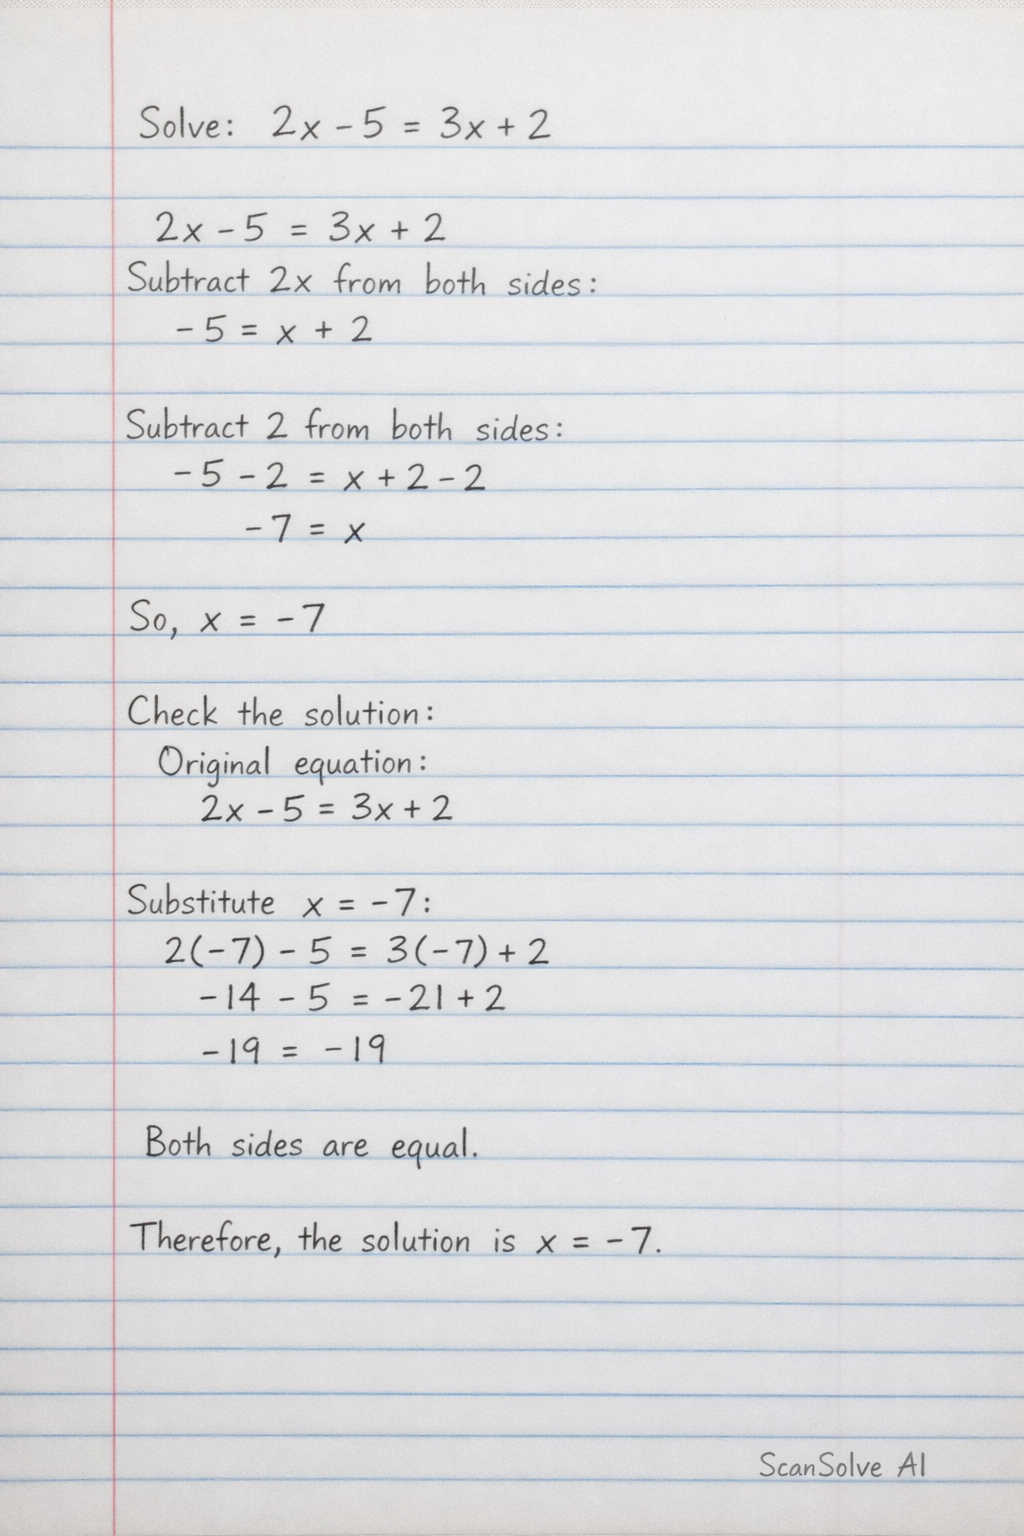 Solve: 2x - 5 = 3x + 2
2x - 5 = 3x + 2
Subtract 2x from both sides:
-5 = x + 2
Subtract 2 from both sides:
-5 - 2 = x + 2 - 2
-7 = x
So, x = -7
Check the solution:
Original equation:
2x - 5 = 3x + 2
Substitute x = -7:
2(-7) - 5 = 3(-7) + 2
-14 - 5 = -21 + 2
-19 = -19
Both sides are equal.
Therefore, the solution is x = -7.
ScanSolve AI